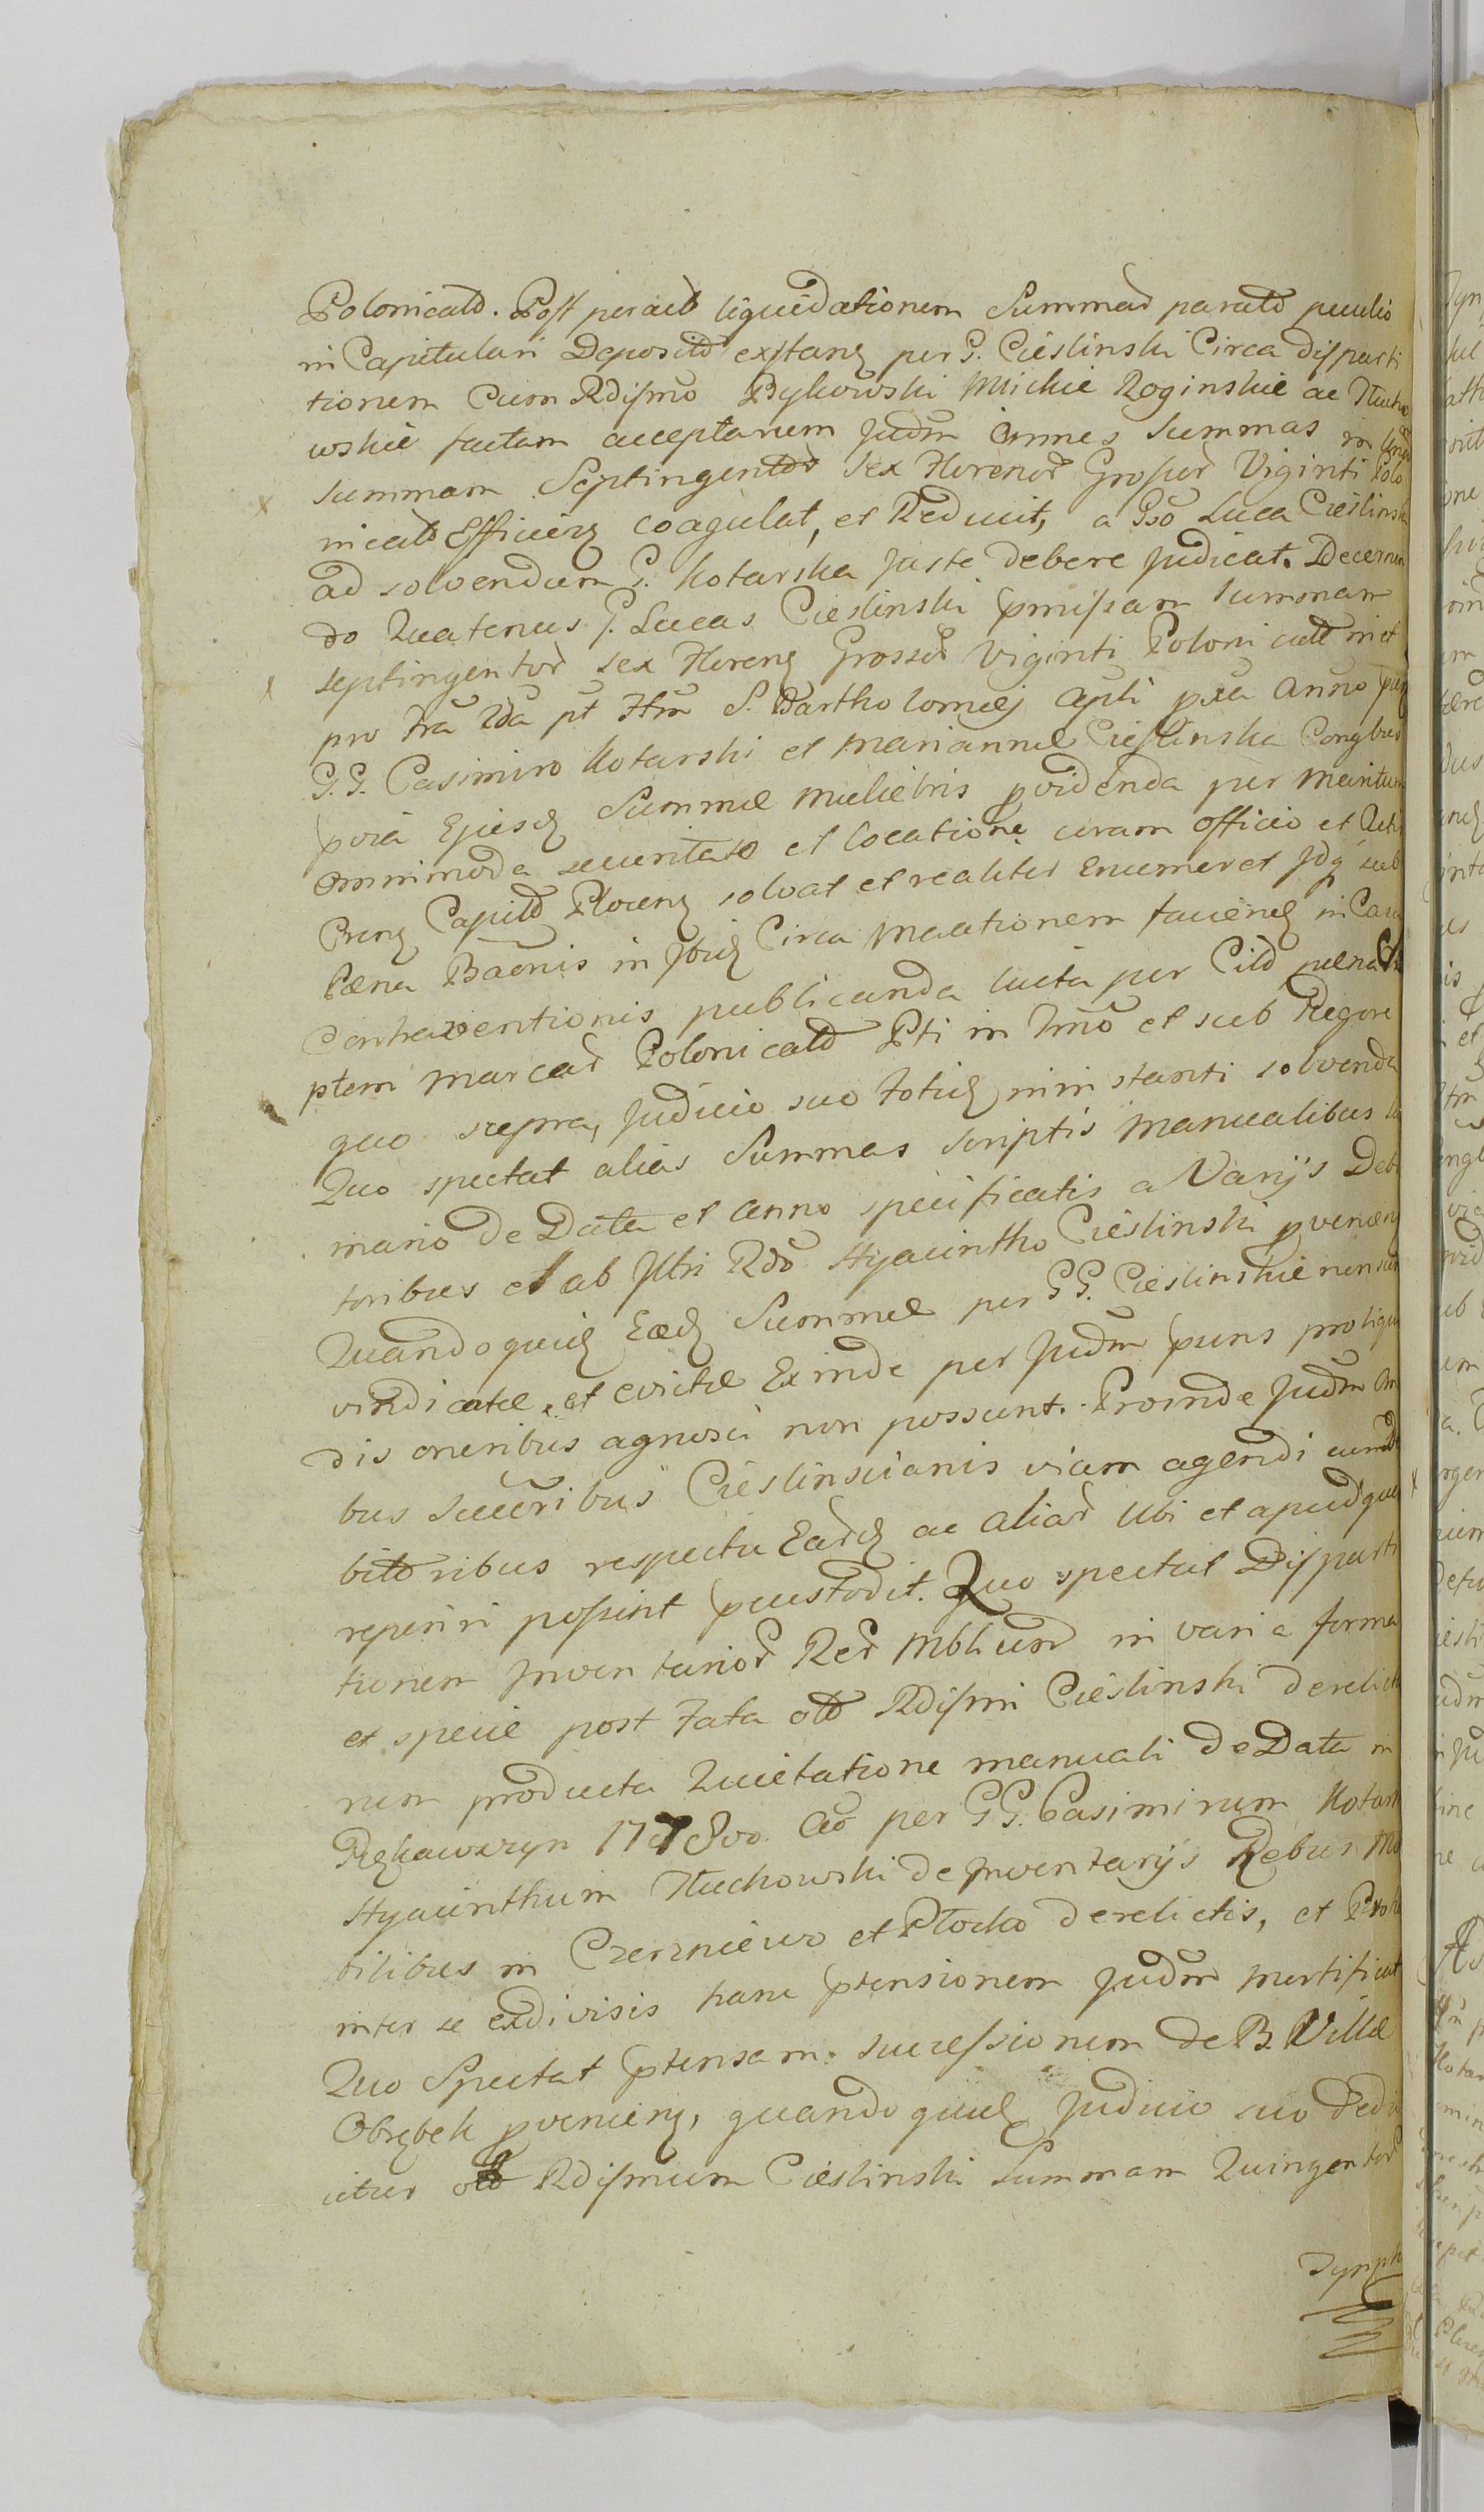 Polonicalᵈ. Post peract liquidationem Summarᵈ paratᵈ peculio
in Capitulari Deposito exstanꝫ per G. Cieslinski Circa disparti
tionem Cum Rdissmo Bykowski Michie Roginskie ac Tłucho
wskie factam acceptarum Judm omnes Summas in Unā
Summam Septingentor Sex Florenor Grosser Viginti Polo
nicalᵈ Efficienꝫ coagulat, et Reducit, a Gso Luca Cieslinski
ad solvendum G. Kotarska juste debere judicat. Decernen
do Quatenus G. Lucas Cieslinski pmissam Summam
septingentor sex Florenꝫ Grosser Viginti Polonicalᵈ in et
pro fra 2da pt Ftm S. Bartholomęj Apli pxa Anno
G. G. Casimiro Kotarski et Mariannæ Cieslinska Congbus
pvia Ejusꝫ Summæ Muliebris pvidenda per Maritum
omnimoda securitate et locatione coram officio et Actis
Prenꝫ Capitᵈ Plocenꝫ solvat et realiter Enumeret Idꝫ sub
Pæna Baonis in Ibidꝫ Circa Mactionem faciendꝫ in Casu
Contraventionis publicanda lucta per Citᵈ pæna
ptem Marcar Polonicalᵈ Pti in Imo et sub Rigore
quo supra, Judicio suo Totidꝫ ministanti solvenda
Quo spectat alias Summas scriptis Manualibus
mario de Data et Anno specificatis a Varijs Debi
toribus et ab Iltri Rdo Hyacintho Cieslinski pvenienꝫ
Quandoquidꝫ Eædꝫ Summæ per GG. Cieslinskie non sunt
vindicatæ, et evictæ Exinde per Judm puns pro liqui
dis oneribus agnosci non possunt. Proinde Judm Omni
bus Succribus Cieslinscianis viam agendi cum De
bitoribus respectu Eardꝫ ac aliar Ubi et apud quem
reperiri possint pcustodit. Quo spectat Disparti
tionem Inventarior Rer Mblium in varia forma
et specie post Fata olᵈ Rdissmi Cieslinski derelicta
rum producta Quietatione manuali de Data in
Rękawczyn 1778vo. Ao per GG. Casimirum Kotarski
Hyacinthum Tłuchowski de Inventarijs Rebus Mo
bilibus in Czerniewo et Płocko derelictis, et
inter se exdivisis hanc ptensionem Judm mortificat
Quo Spectat ptensam. successionem de B. Villæ
Obrębek pvenienꝫ, quandoquidꝫ Judicio suo dedu
citur olᵈ Rdissmum Cieslinski Summam Quingentor
Tymph